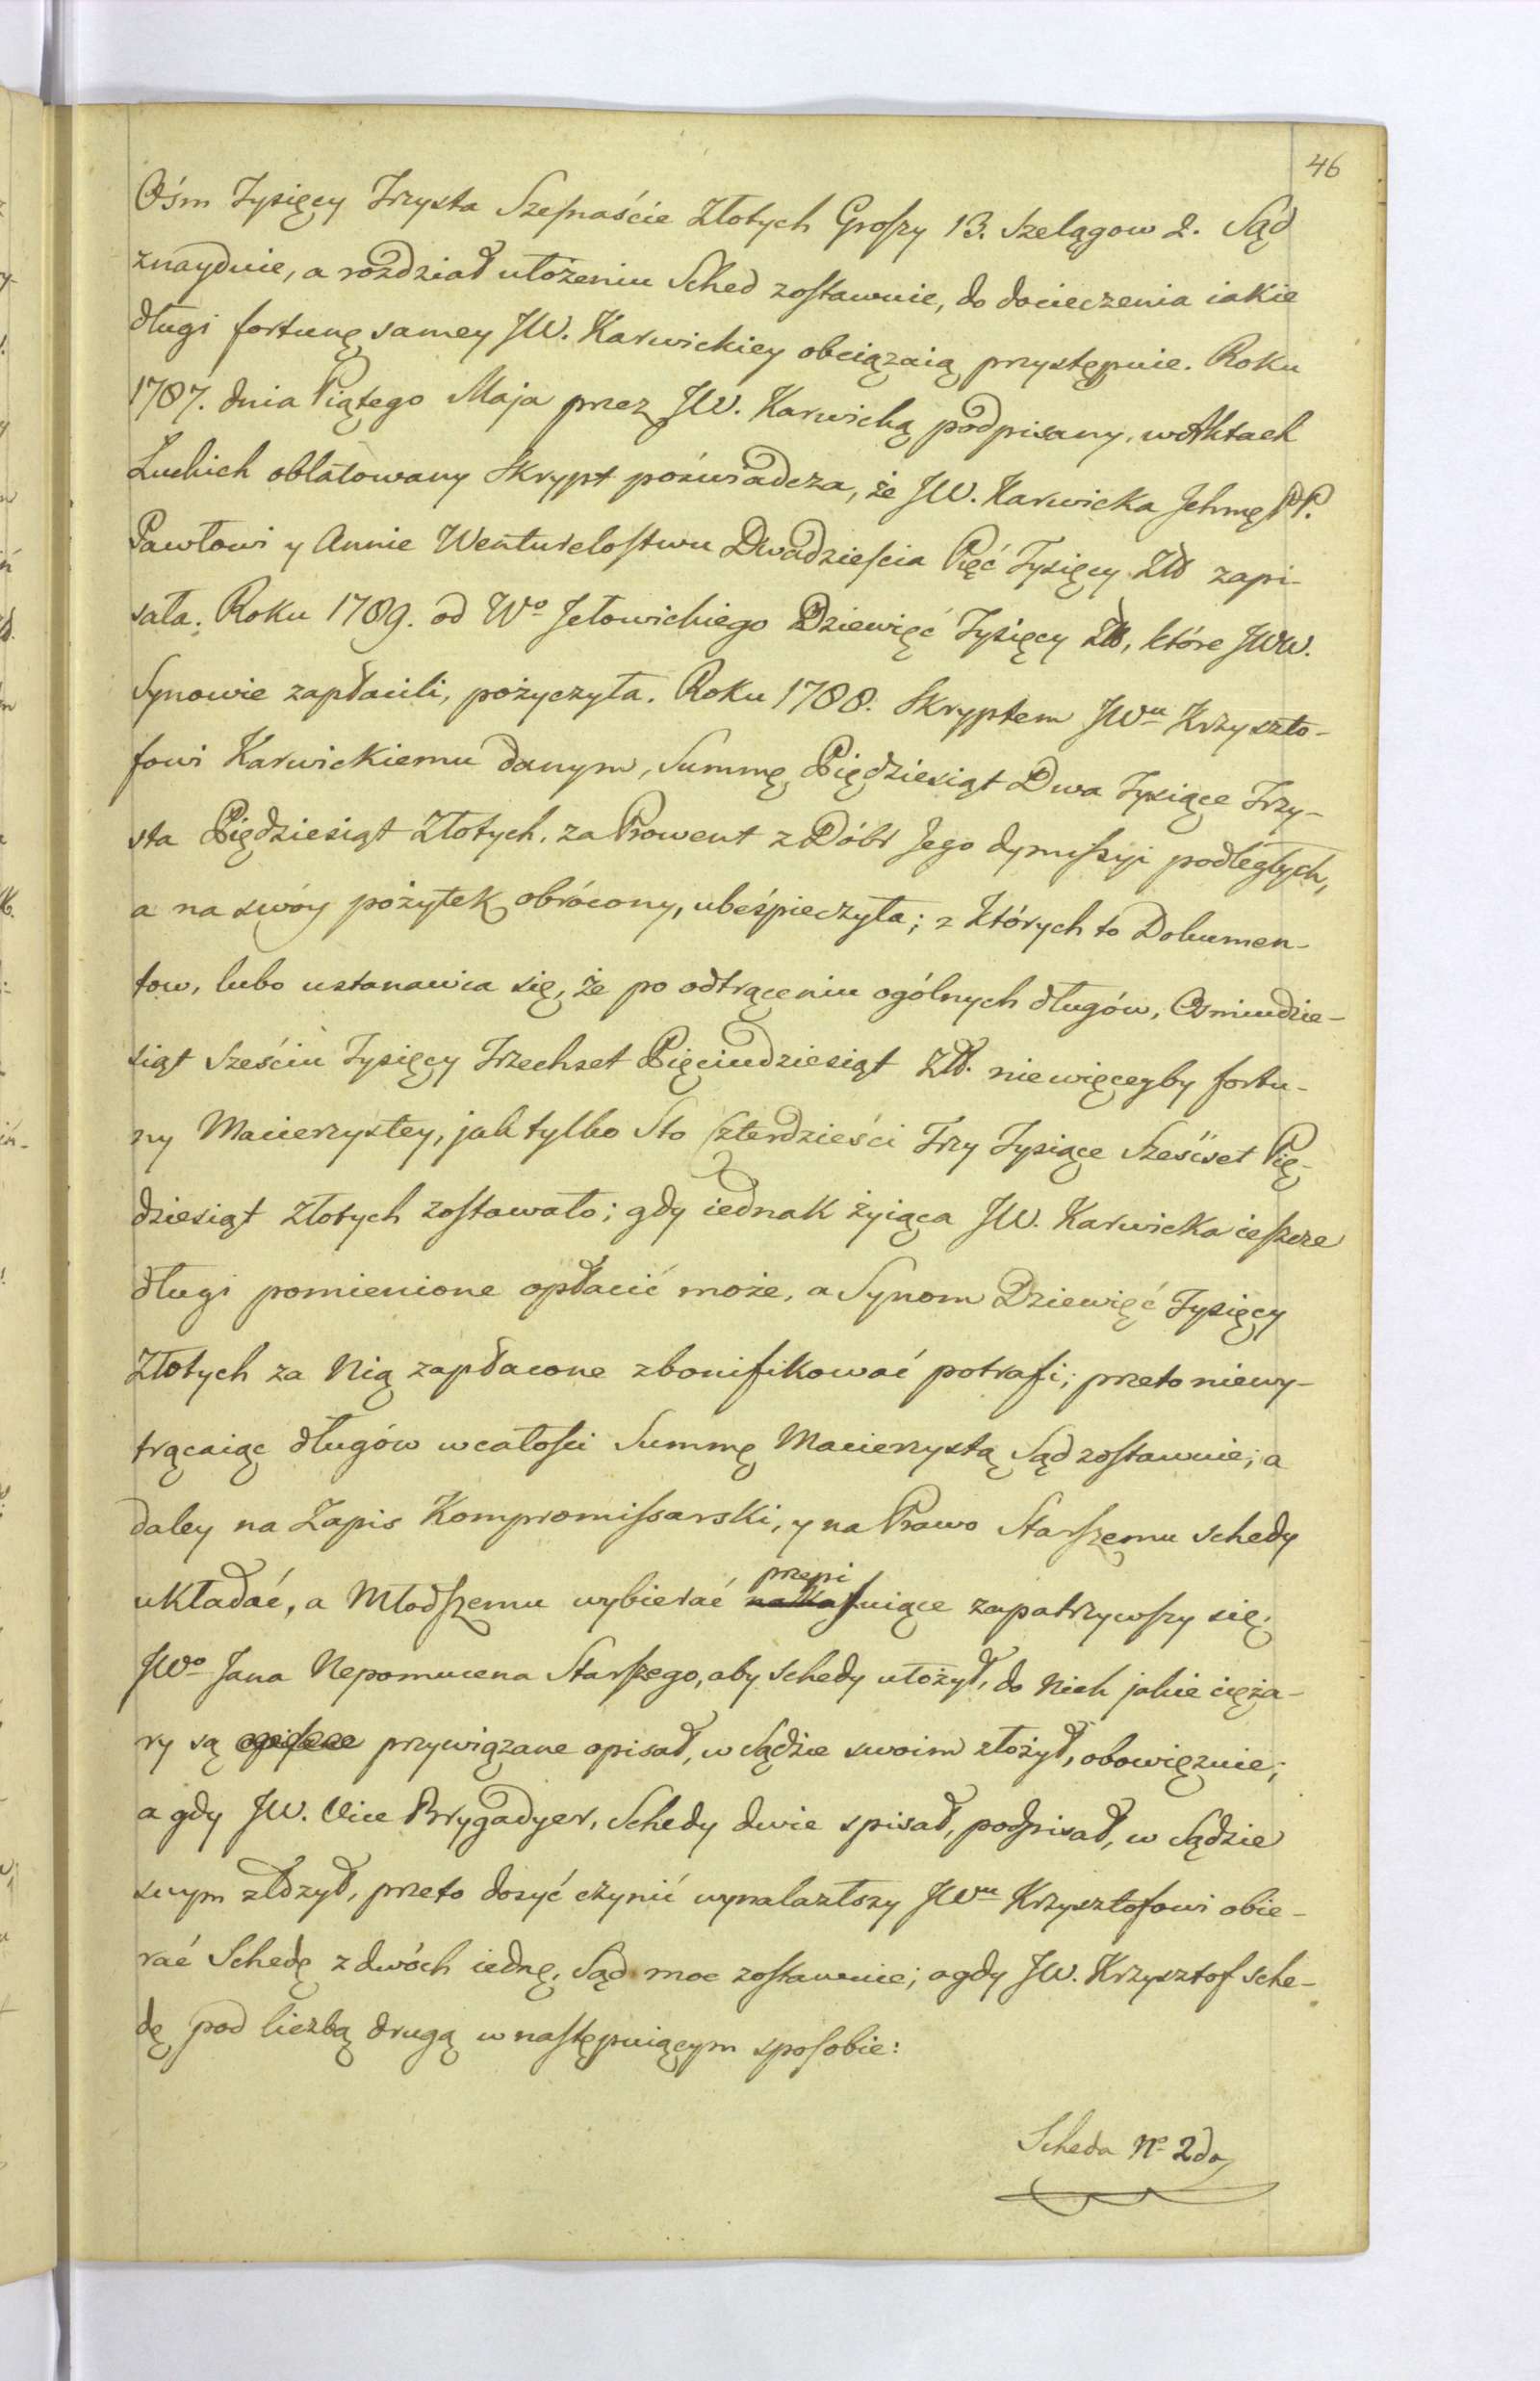 46
Ośm Tysięcy Trzysta Szesnaście Złotych Groszy 13. Szelągow 2. Sąd
znayduie, a rozdział ułożeniu Sched zostawuie, do docieczenia iakie
długi fortunę samey JW. Karwickiey obciązaią przystępuie. Roku
1787. dnia Piątego Maja przez JW. Karwicką podpisany, w Aktach
Łuckich oblatowany Skrypt poświadcza, że JW. Karwicka Jchmę PP.
Pawłowi y Annie Wenturelostwu Dwadzieścia Pięć Tysięcy Złł zapi-
sała. Roku 1789. od Wo Jełowickiego Dziewięć Tysięcy Złł, które JWW.
Synowie zapłacili, pożyczyła. Roku 1788. Skryptem JWu Krzyszto-
fowi Karwickiemu danym, Summę Pięćdziesiąt Dwa Tysiące Trzy-
sta Pięćdziesiąt Złotych, za Prowent z Dóbr Jego dymissyi podległych,
a na swóy pożytek obrócony, ubeśpieczyła; z których to Dokumen-
tow, lubo ustanawia się, że po odtrąceniu ogólnych długów, Osmiudzie-
siąt Sześciu Tysięcy Trzechset Pięciudziesiąt Złł. niewięceyby fortu-
ny Macierzystey, jak tylko Sto Czterdzieści Trzy Tysiące Sześćset Pię-
dziesiąt Złotych zostawało; gdy iednak żyiąca JW. Karwicka ieszcze
długi pomienione opłacić może, a Synom Dziewięć Tysięcy
Złotych za Nią zapłacone zbonifikować potrafi; przeto niewy-
trącaiąc długów w całości Summę Macierzystą Sąd zostawuie; a
daley na Zapis Kompromissarski, y na Prawo Starszemu schedy
układać, a Młodszemu wybierać przepi
nakasuiące zapatrzywszy się,
JWo Jana Nepomucena Starszego, aby schedy ułożył, do Nich jakie cięża-
ry są opisane przywiązane opisał, w Sądzie swoim złożył, obowięzuie;
a gdy JW. Vice Brygadyer, Schedy dwie spisał, podpisał, w Sądzie
swym złożył, przeto dosyć czynić wynalazłszy JWu Krzysztofowi obie-
rać Schedę z dwóch iednę, Sąd moc zostawuie; a gdy JW. Krzysztof sche-
dę pod liczbą drugą w następuiącym sposobie:
Scheda No 2da